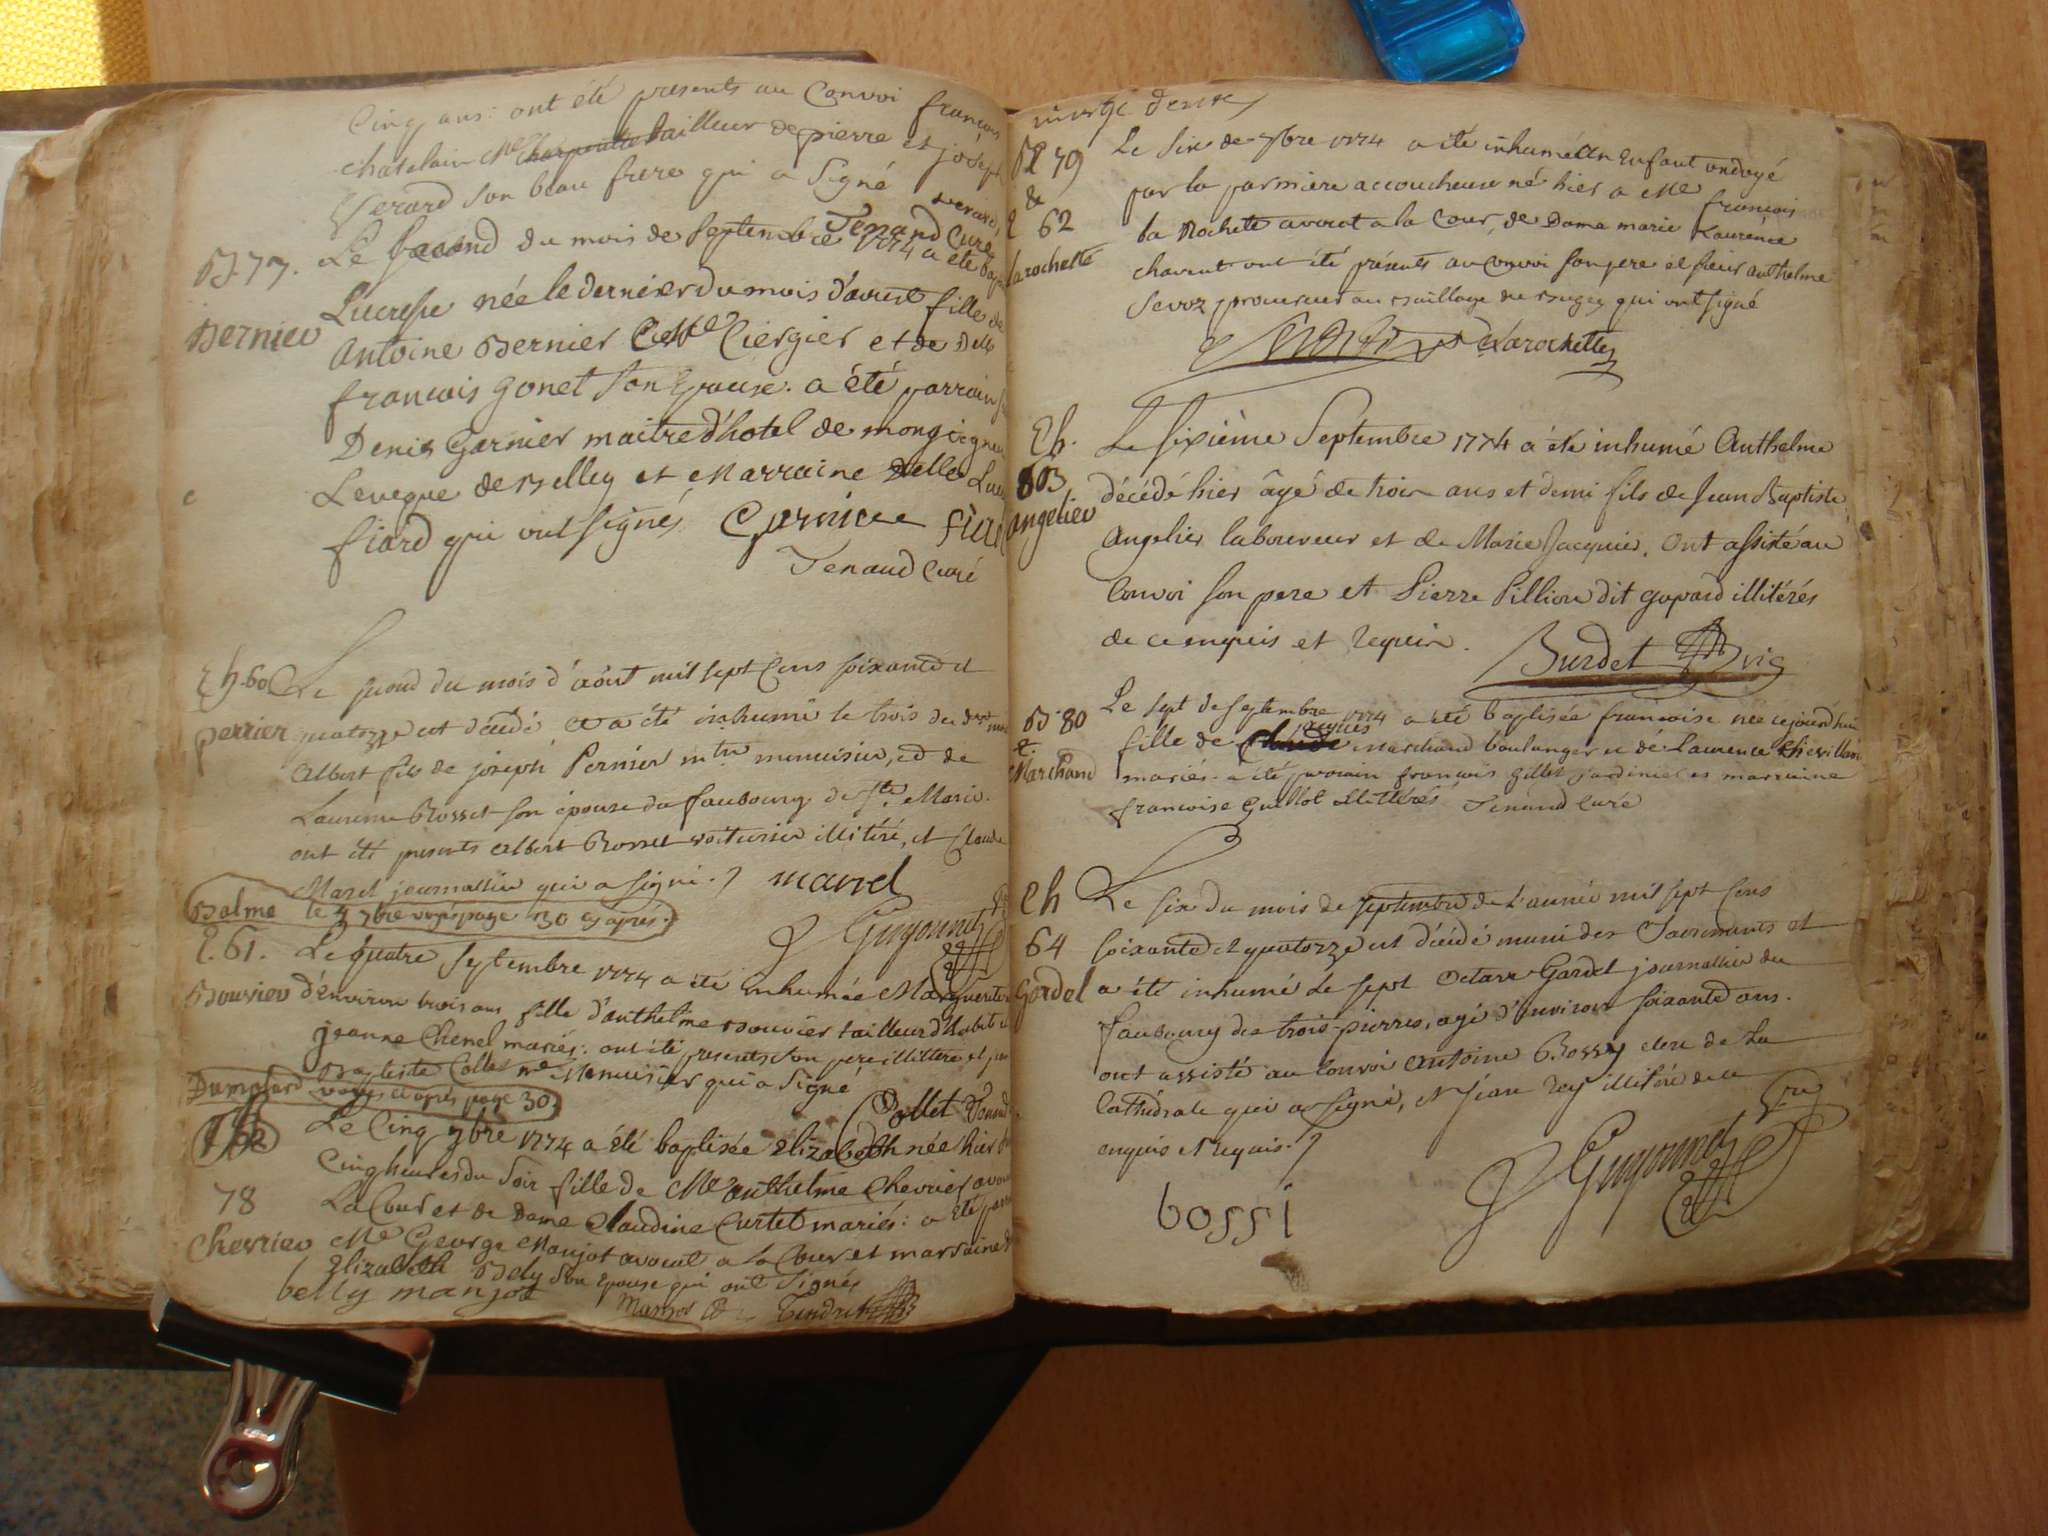 Cinq ans: ont été presents au Convoi françois
chatelain Me charpentier tailleur de pierre et joseph
Gerard son beau frere qui a Signé
Gerard
Tenand Curé
B. 77.
Bernier
Le second du mois de septembre 1774 a été
Lucresse née le dernier du mois d'aoust fille de
Antoine Bernier Me Ciergier et de Delle
francois Gonet son Epouse. a été parrain
Denis Garnier maitre d'hotel de mongseigneur
Leveque de Belley et Marraine Delle
fiard qui ont signés Garnier
Tenand Curé
Ch. 60
perrier
Le second du mois d'août mil sept cens soixante et
quatorze est décédé, et a été inhumé le trois du
Albert fils de joseph Pernier mtre menuisier, et de
Laurence Rosset son épouse du faubourg de Ste Marie.
ont été presents Albert Rosset voiturier illitéré, et Claude
Marel journallier qui a signé. marel
Guyonnet
Balme le 3 7bre voyés page 30 cy apres.
P. 61.
Bouvier
Le quatre Septembre 1774 a été inhumée Marguerite
d'environ trois ans fille d'anthelme Bouvier tailleur d'habits et
jeanne Chenel mariés: ont été presents son pere illittere et jean
Baptiste Collet Me Menuisier qui a Signé
Collet Tenand
Dumplard voyés cy apres page 30
78
Chevrier
Le Cinq 7bre 1774 a été baptisée Elizabeth née hier
Cinq heures du Soir fille de Me anthelme Chevrier avocat
La Cour et de Dame Claudine Curtet mariés: a été parrain
Me George Manjot avocat a la Cour et marraine
Elizabeth Bely Son Epouse qui ont Signés
belly manjot
Manjot
P 79
&
62
Larochette
Le Six de 7bre 1774 a été inhumé Un Enfant ondoyé
par la parmiere accoucheuse né hier a Me françois
La Rochette avocat a la Cour, de Dame marie Laurence
chavent ont été présents au Convoi son pere et sieur anthelme
Sevoz procureur au Baillage du Bugey qui ont signé
Larochette
Ch.
63
angelier
Le sixième Septembre 1774 a été inhumé Anthelme
décédé hier âgé de trois ans et demi fils de Jean Baptiste
Angelier laboureur et de Marie Jacquier. Ont assisté au
Convoi son pere et Pierre Pillion dit gapard illitérés
de ce enquis et requis.
Burdet Vic
B. 80
Marchand
Le sept de septembre 1774 a été baptisée francoise née cejourd'hui
fille de Claude jaques Marchand boulanger et de Laurence Chevillard
mariés. a été parrain françois Gillet jardinier et marraine
francoise Guillot illittérés Tenand Curé
Ch
64
Gardel
Le six du mois de septembre de l'année mil sept cens
soixante et quatorze est décédé muni des Sacremants et
a été inhumé le sept Octave Gardel journallier du
faubourg des trois-pierres, agé d'environ soixante ans.
ont assisté au convoi Antoine Bossy clerc de la
Cathédrale qui a signé, et Jean Rey illitéré de ce
enquis et requis.
Guyonnet
bossi